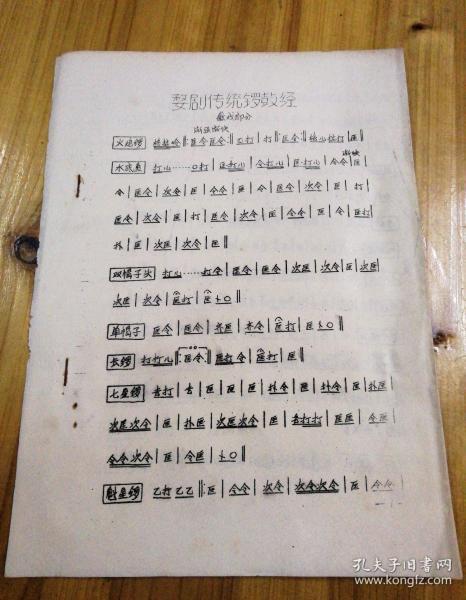 婺剧传统锣鼓经
叠戏部分
渐强渐快
火炮锣 哒哒哙 ‖: 匡令匡令 :‖ 匡打 | 打 | 匡令 | 打打 | 匡 ‖
水底鱼 打心……0打 | 匡·打心 | 令打心 | 匡·打心 | 令令 | 匡 |
渐快
令 | 匡令 | 次令 | 匡 | 令令 | 匡 | 令 | 匡令 | 次令 | 匡 | 打
匡令 | 次令 | 匡 | 打 | 匡令 | 次令 | 匡 | 令令 | 匡 | 令 | 匡打
扑 | 匡 | 次匡 | 次令 | 匡 ‖
双帽子头 打心……打令 | 匡令 | 匡令 | 次匡 | 次令 | 匡 | 次匡
次匡 | 次令 | 匡打 | 匡 0 ‖
单帽子 匡令 | 匡令 | 次匡 | 次令 | 匡打 | 匡 0 ‖
长锣 打打心 ‖: 匡令 :‖ 匡打令 | 匡打 | 匡 ‖
七星锣 打 | | 匡 | 匡 | 匡 | 扑令 | 匡 | 扑令 | 匡 | 扑匡 |
次匡次令 | 匡 | 扑匡 | 次匡次令 | 匡 | 打打 | 匡匡 | 令匡 |
令令次令 | 匡 | 令匡 | 0 ‖
魁星锣 乙打乙乙 ‖: 匡 | 令令 | 次令 | 次令次令 | 匡 | 令令 |
孔夫子旧书网
www.kongfz.com